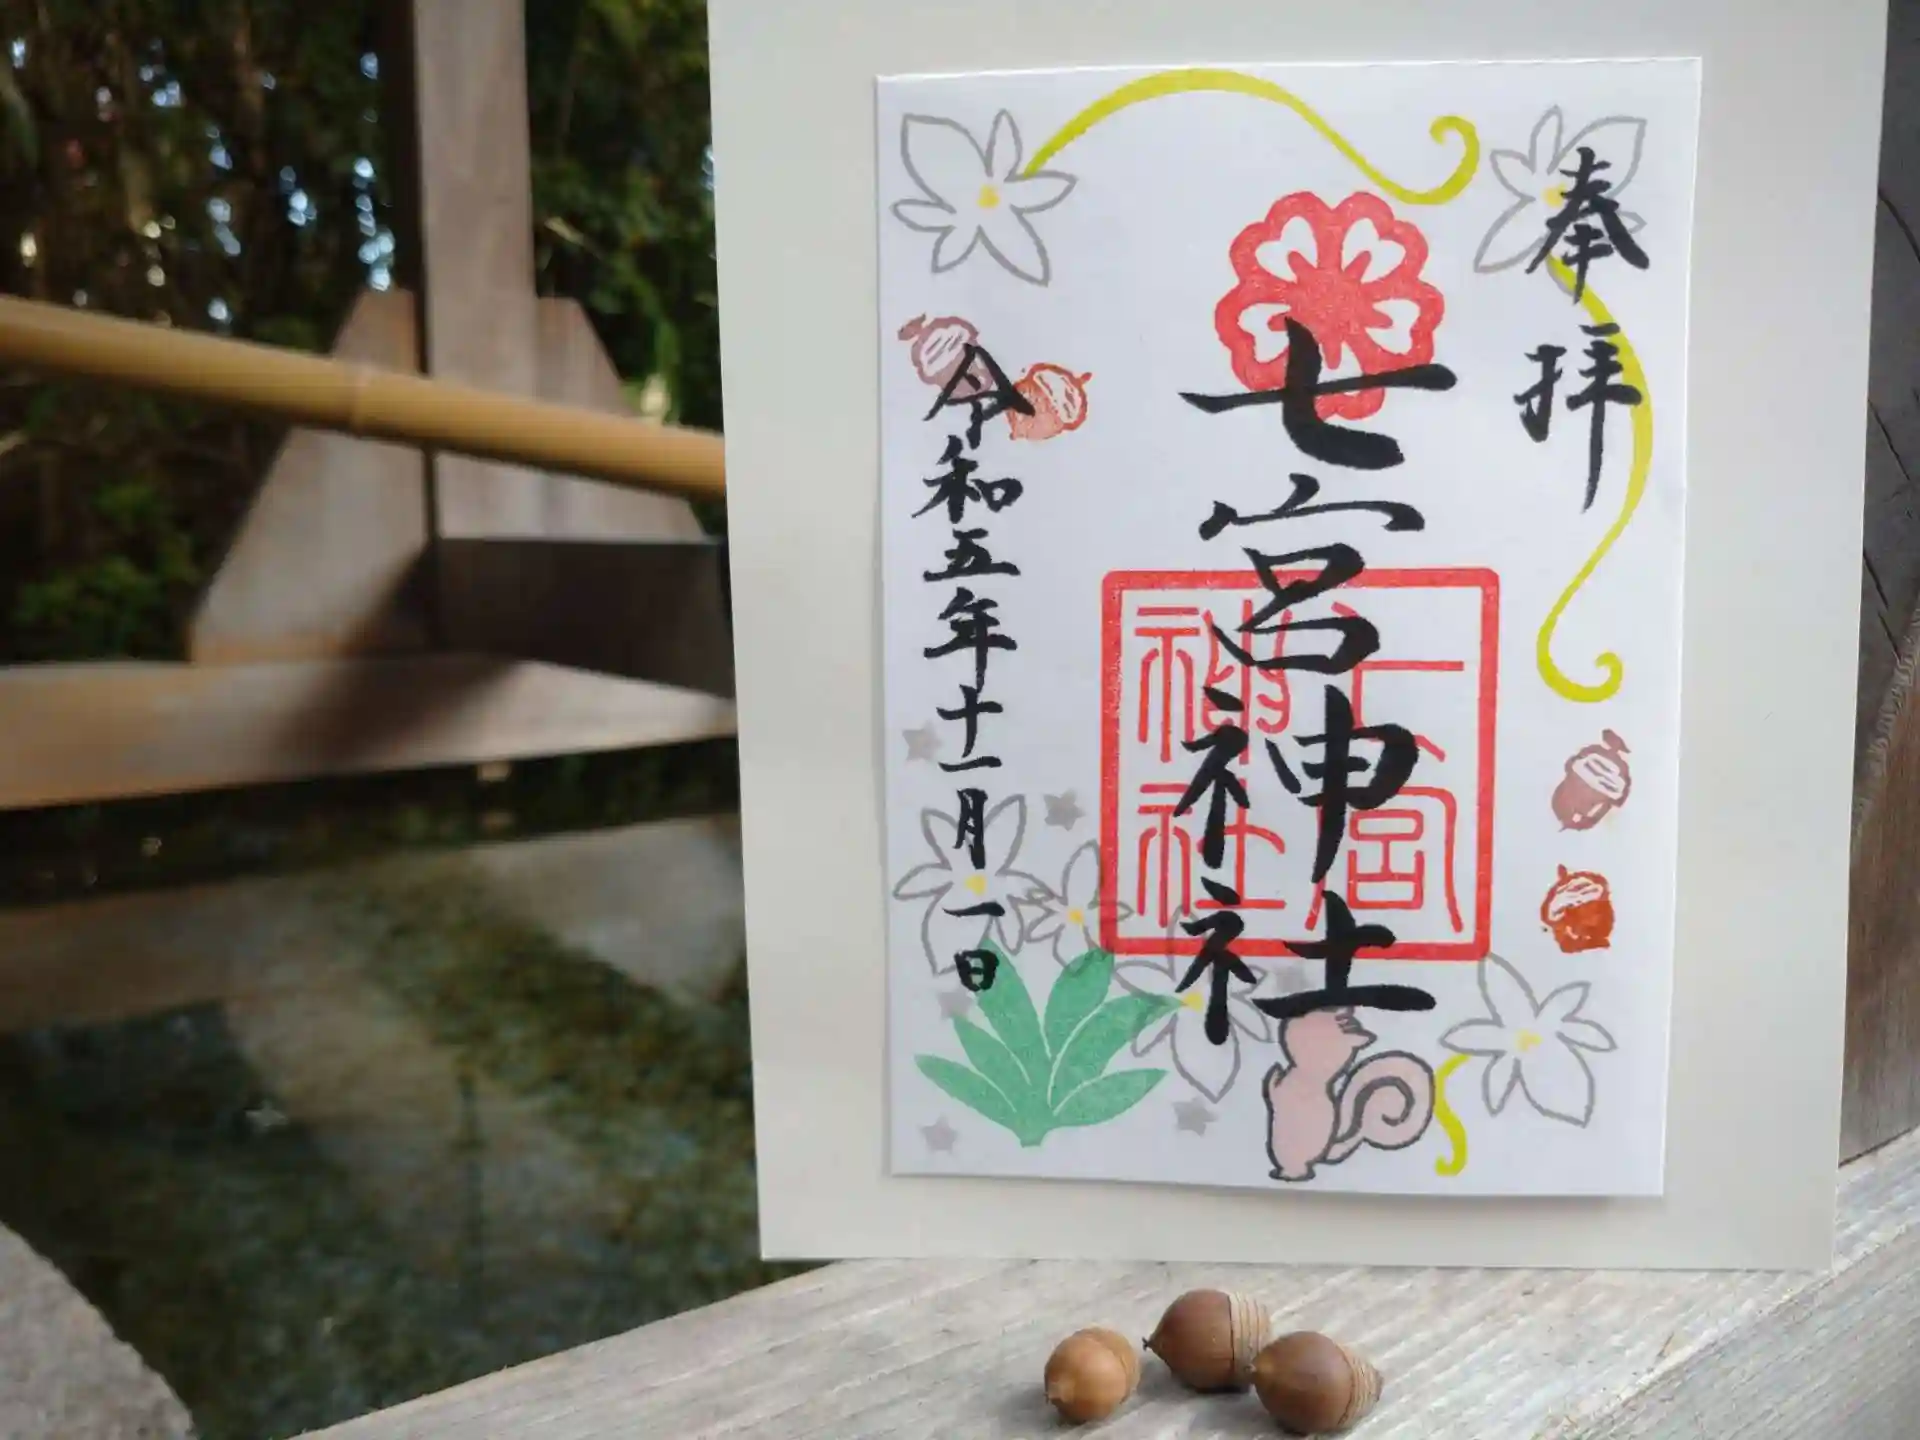 奉拝
七宮神社
七宮神社
令和五年十一月一日